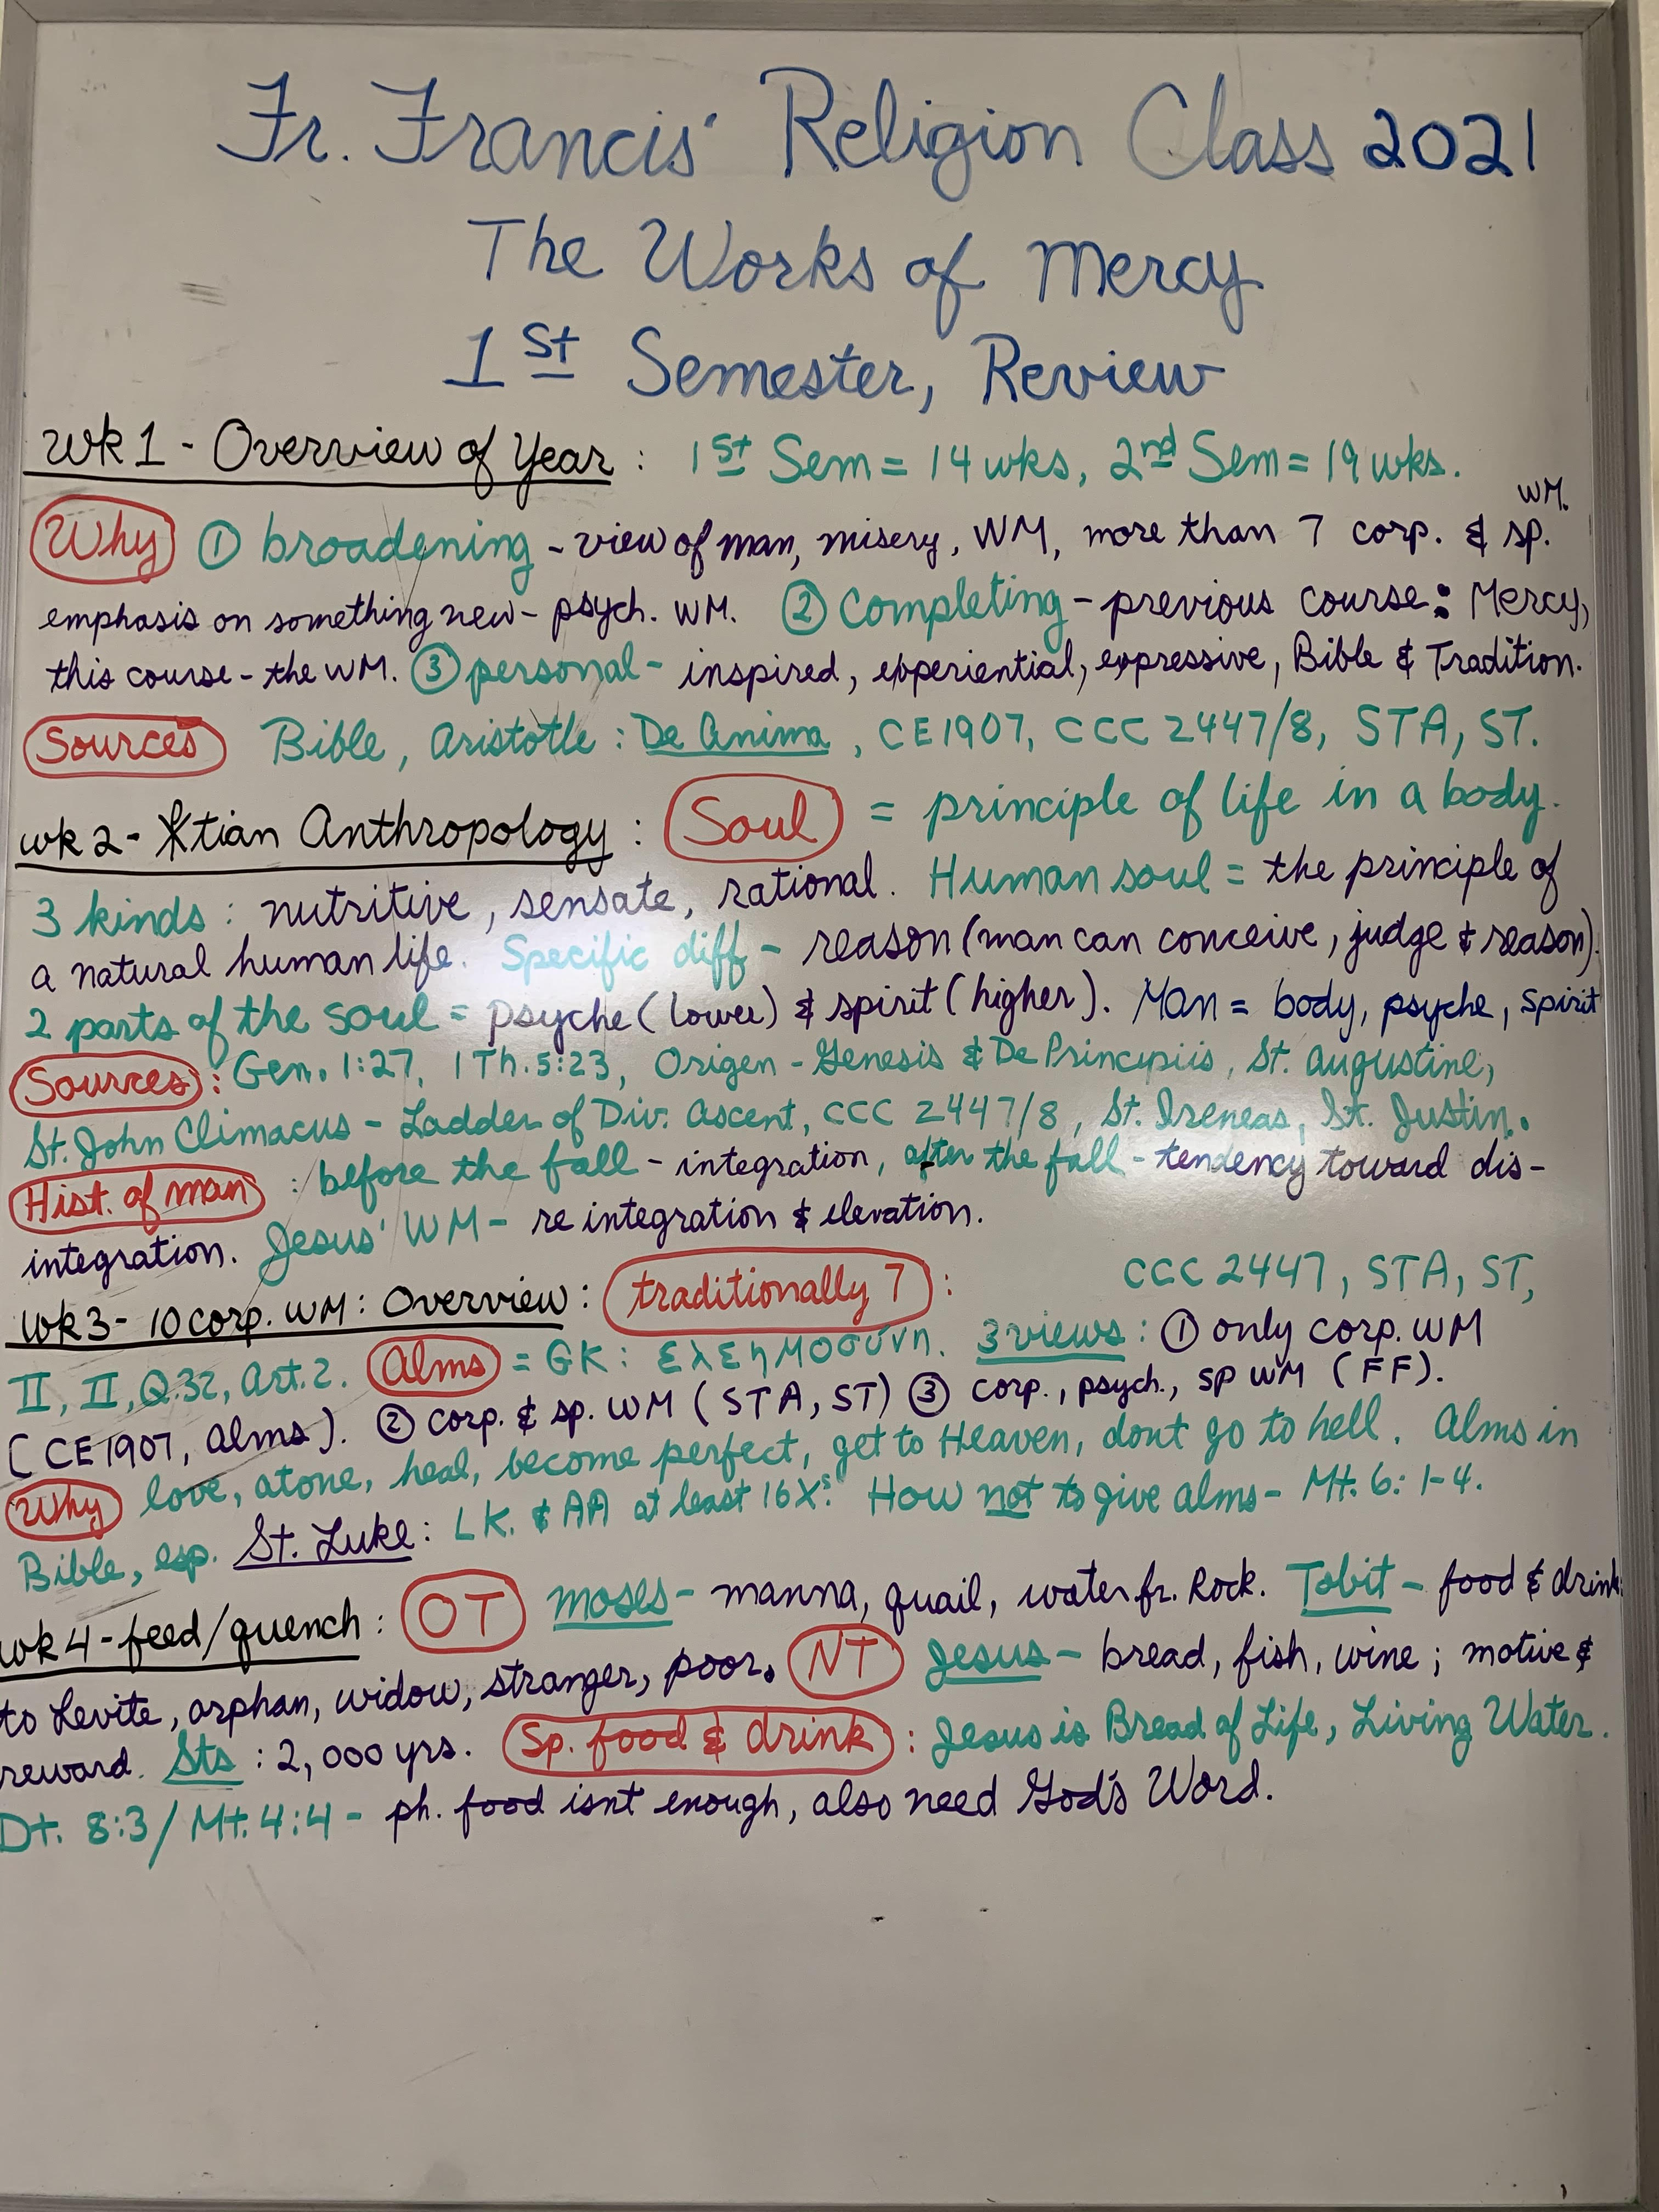 Fr. Francis' Religion Class 2021
The Works of Mercy
1st Semester, Review
wk 1 - Overview of Year: 1st Sem = 14 wks, 2nd Sem = 19 wks.
WM.
Why ① broadening - view of man, misery, WM, more than 7 corp. & sp.
emphasis on something new - psych. WM. ② Completing - previous course: Mercy,
this course - the WM. ③ personal - inspired, experiential, expressive, Bible & Tradition.
Sources Bible, Aristotle: De Anima, CE1907, CCC 2447/8, STA, ST.
wk 2 - Xtian Anthropology: Soul = principle of life in a body.
3 kinds: nutritive, sensate, rational. Human soul = the principle of
a natural human life. Specific diff - reason (man can conceive, judge & reason).
2 parts of the soul = psyche (lower) & spirit (higher). Man = body, psyche, spirit
Sources: Gen. 1:27, 1 Th. 5:23, Origen - Genesis & De Principiis, St. Augustine,
St. John Climacus - Ladder of Div. Ascent, CCC 2447/8, St. Ireneas, St. Justin.
Hist. of man: before the fall - integration, after the fall - tendency toward dis-
integration. Jesus' WM - re integration & elevation.
wk 3 - 10 corp. WM: Overview: traditionally 7: CCC 2447, STA, ST,
II, II, Q.32, Art. 2. Alms = GK: ελεημοσύνη. 3 views: ① only corp. WM
(CE1907, Alms). ② corp. & sp. WM (STA, ST) ③ corp., psych., sp WM (FF).
Why love, atone, heal, become perfect, get to Heaven, dont go to hell. Alms in
Bible, esp. St. Luke: LK. & AA at least 16Xs. How not to give alms - Mt. 6: 1-4.
wk 4 - feed/quench: OT Moses - manna, quail, water fr. Rock. Tobit - food & drink
to Levite, orphan, widow, stranger, poor. NT Jesus - bread, fish, wine; motive &
reward. Sts: 2,000 yrs. Sp. food & drink: Jesus is Bread of Life, Living Water.
Dt. 8:3 / Mt. 4:4 - ph. food isnt enough, also need God's Word.